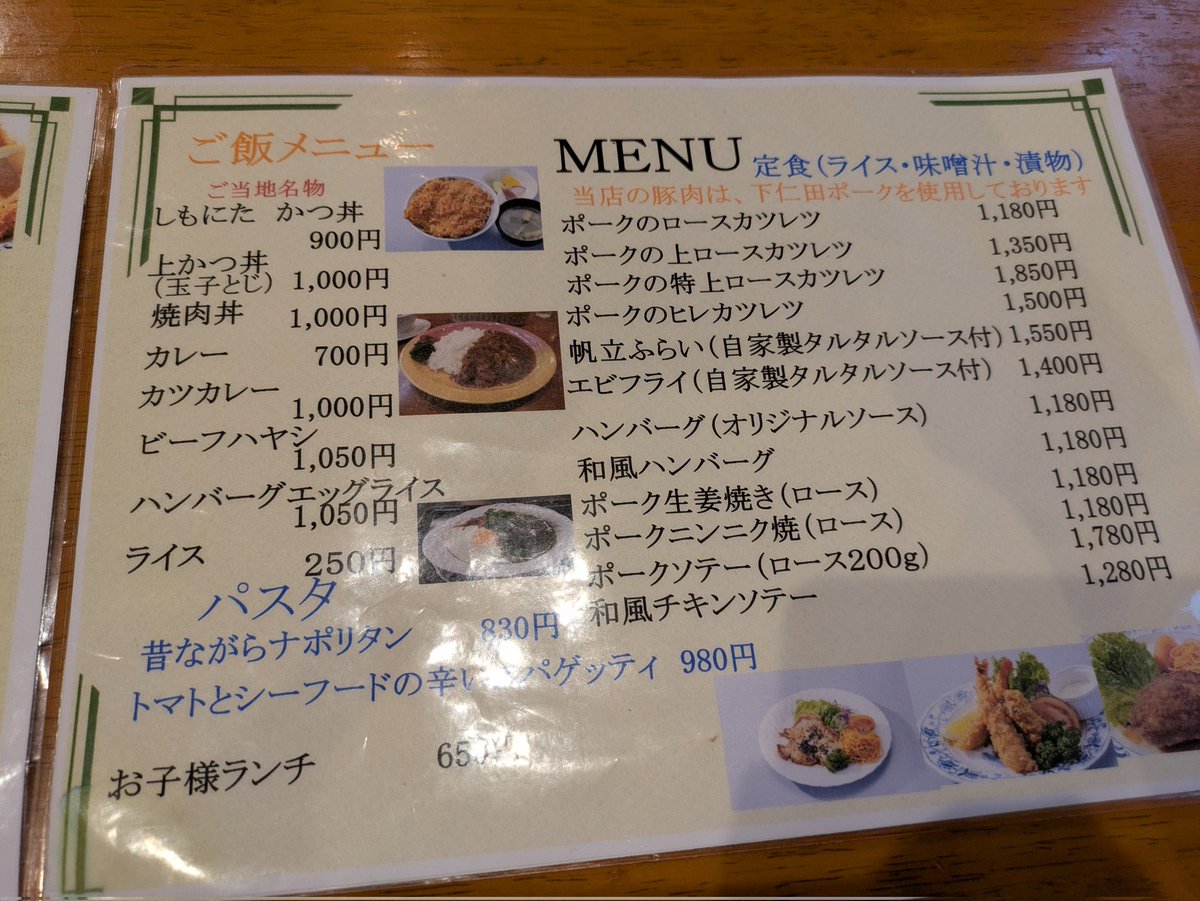 ご飯メニュー
ご当地名物
しもにた かつ丼
900円
上かつ丼
(玉子とじ) 1,000円
焼肉丼 1,000円
カレー 700円
カツカレー
1,000円
ビーフハヤシ
1,050円
ハンバーグエッグライス
1,050円
ライス 250円
パスタ
昔ながらナポリタン 830円
トマトとシーフードの辛いスパゲッティ 980円
お子様ランチ
MENU 定食(ライス・味噌汁・漬物)
当店の豚肉は、下仁田ポークを使用しております
ポークのロースカツレツ 1,180円
ポークの上ロースカツレツ 1,350円
ポークの特上ロースカツレツ 1,850円
ポークのヒレカツレツ 1,500円
帆立ふらい(自家製タルタルソース付) 1,550円
エビフライ(自家製タルタルソース付) 1,400円
ハンバーグ(オリジナルソース) 1,180円
和風ハンバーグ 1,180円
ポーク生姜焼き(ロース) 1,180円
ポークニンニク焼(ロース) 1,180円
ポークソテー(ロース200g) 1,780円
和風チキンソテー 1,280円